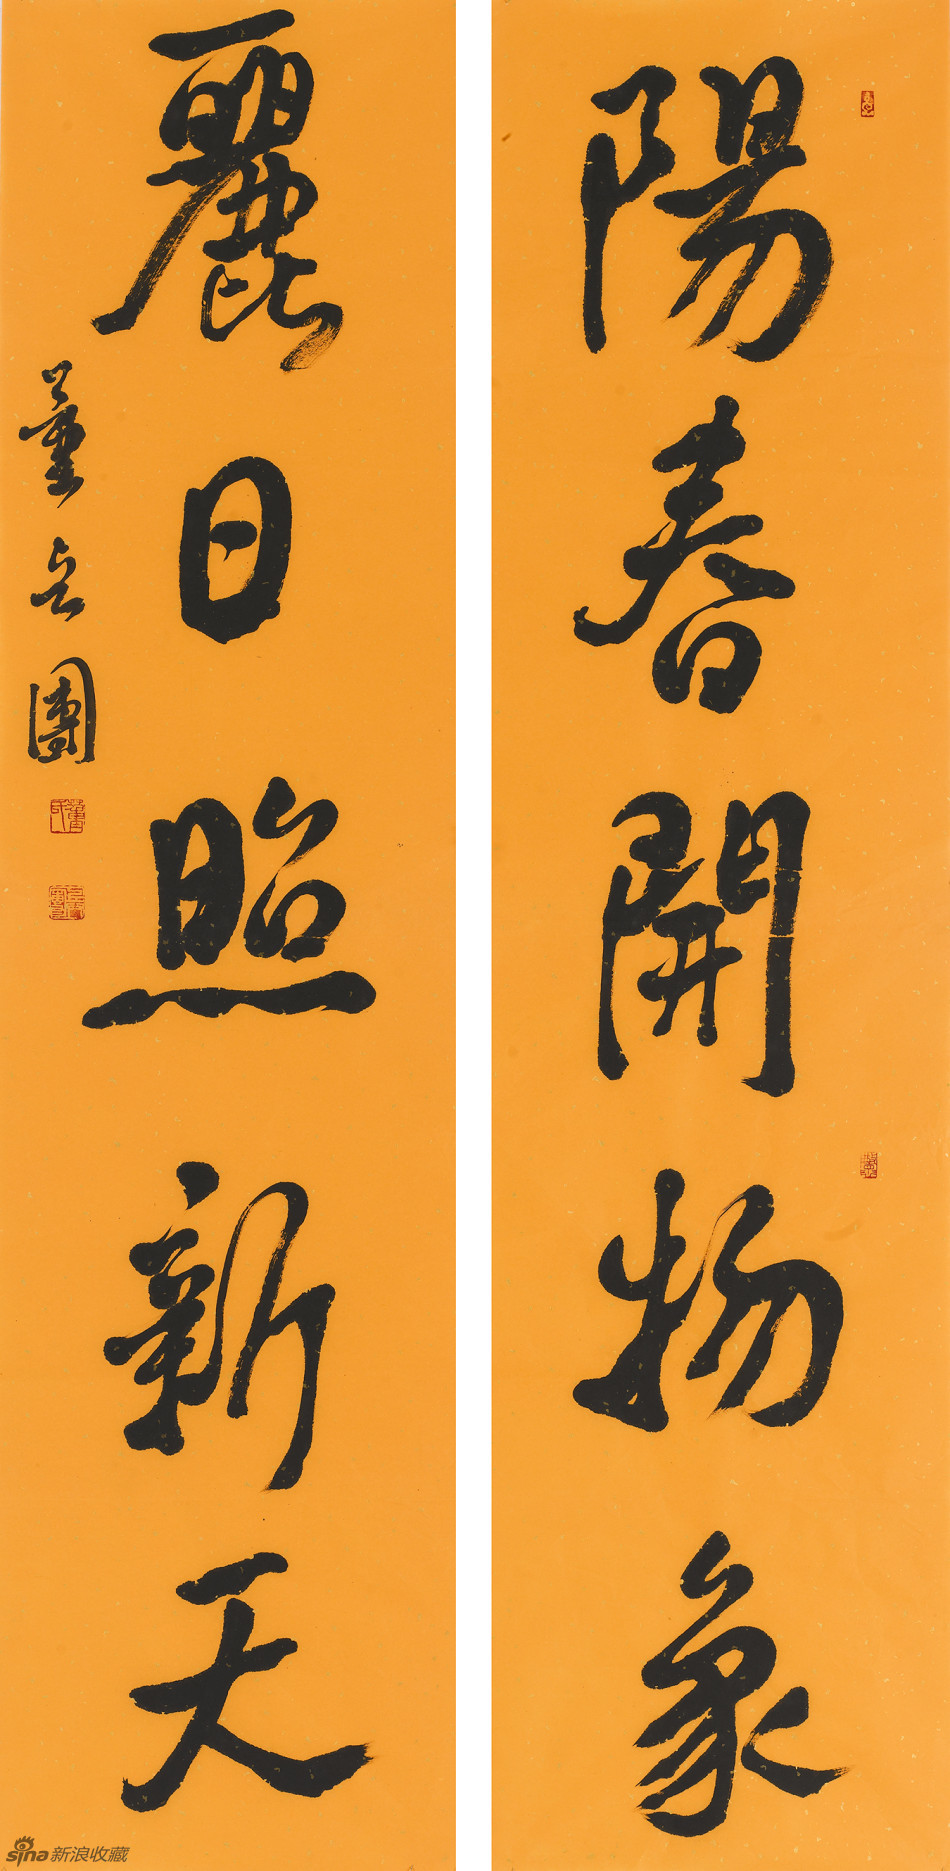 陽春開物象
麗日照新天
sina新浪收藏